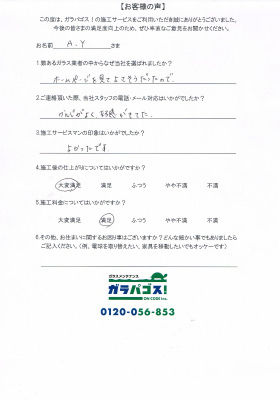 【お客様の声】
この度は、ガラパゴス！の施工サービスをご利用いただき誠にありがとうございました。
今後の皆さまの満足度向上のため、ぜひ率直なご意見をお聞かせください。
お名前 A.Y さま
1.数あるガラス業者の中からなぜ当社を選ばれましたか？
ホームページを見てよさそうだったので
2.ご連絡頂いた際、当社スタッフの電話・メール対応はいかがでしたか？
かんじがよく、好感がもてた.
3.施工サービスマンの印象はいかがでしたか？
よかったです.
4.施工後の仕上がりについてはいかがですか？
大変満足 満足 ふつう やや不満 不満
5.施工料金についてはいかがですか？
大変満足 満足 ふつう やや不満 不満
6.その他、お住まいに関するお困り事はございますか？どんな細かい事でもありましたら
ご記入ください。（例、電球を取り替えたい、家具を移動したいでもオッケーです）
ガラスメンテナンス
ガラパゴス！
OHCODE Inc.
0120-056-853